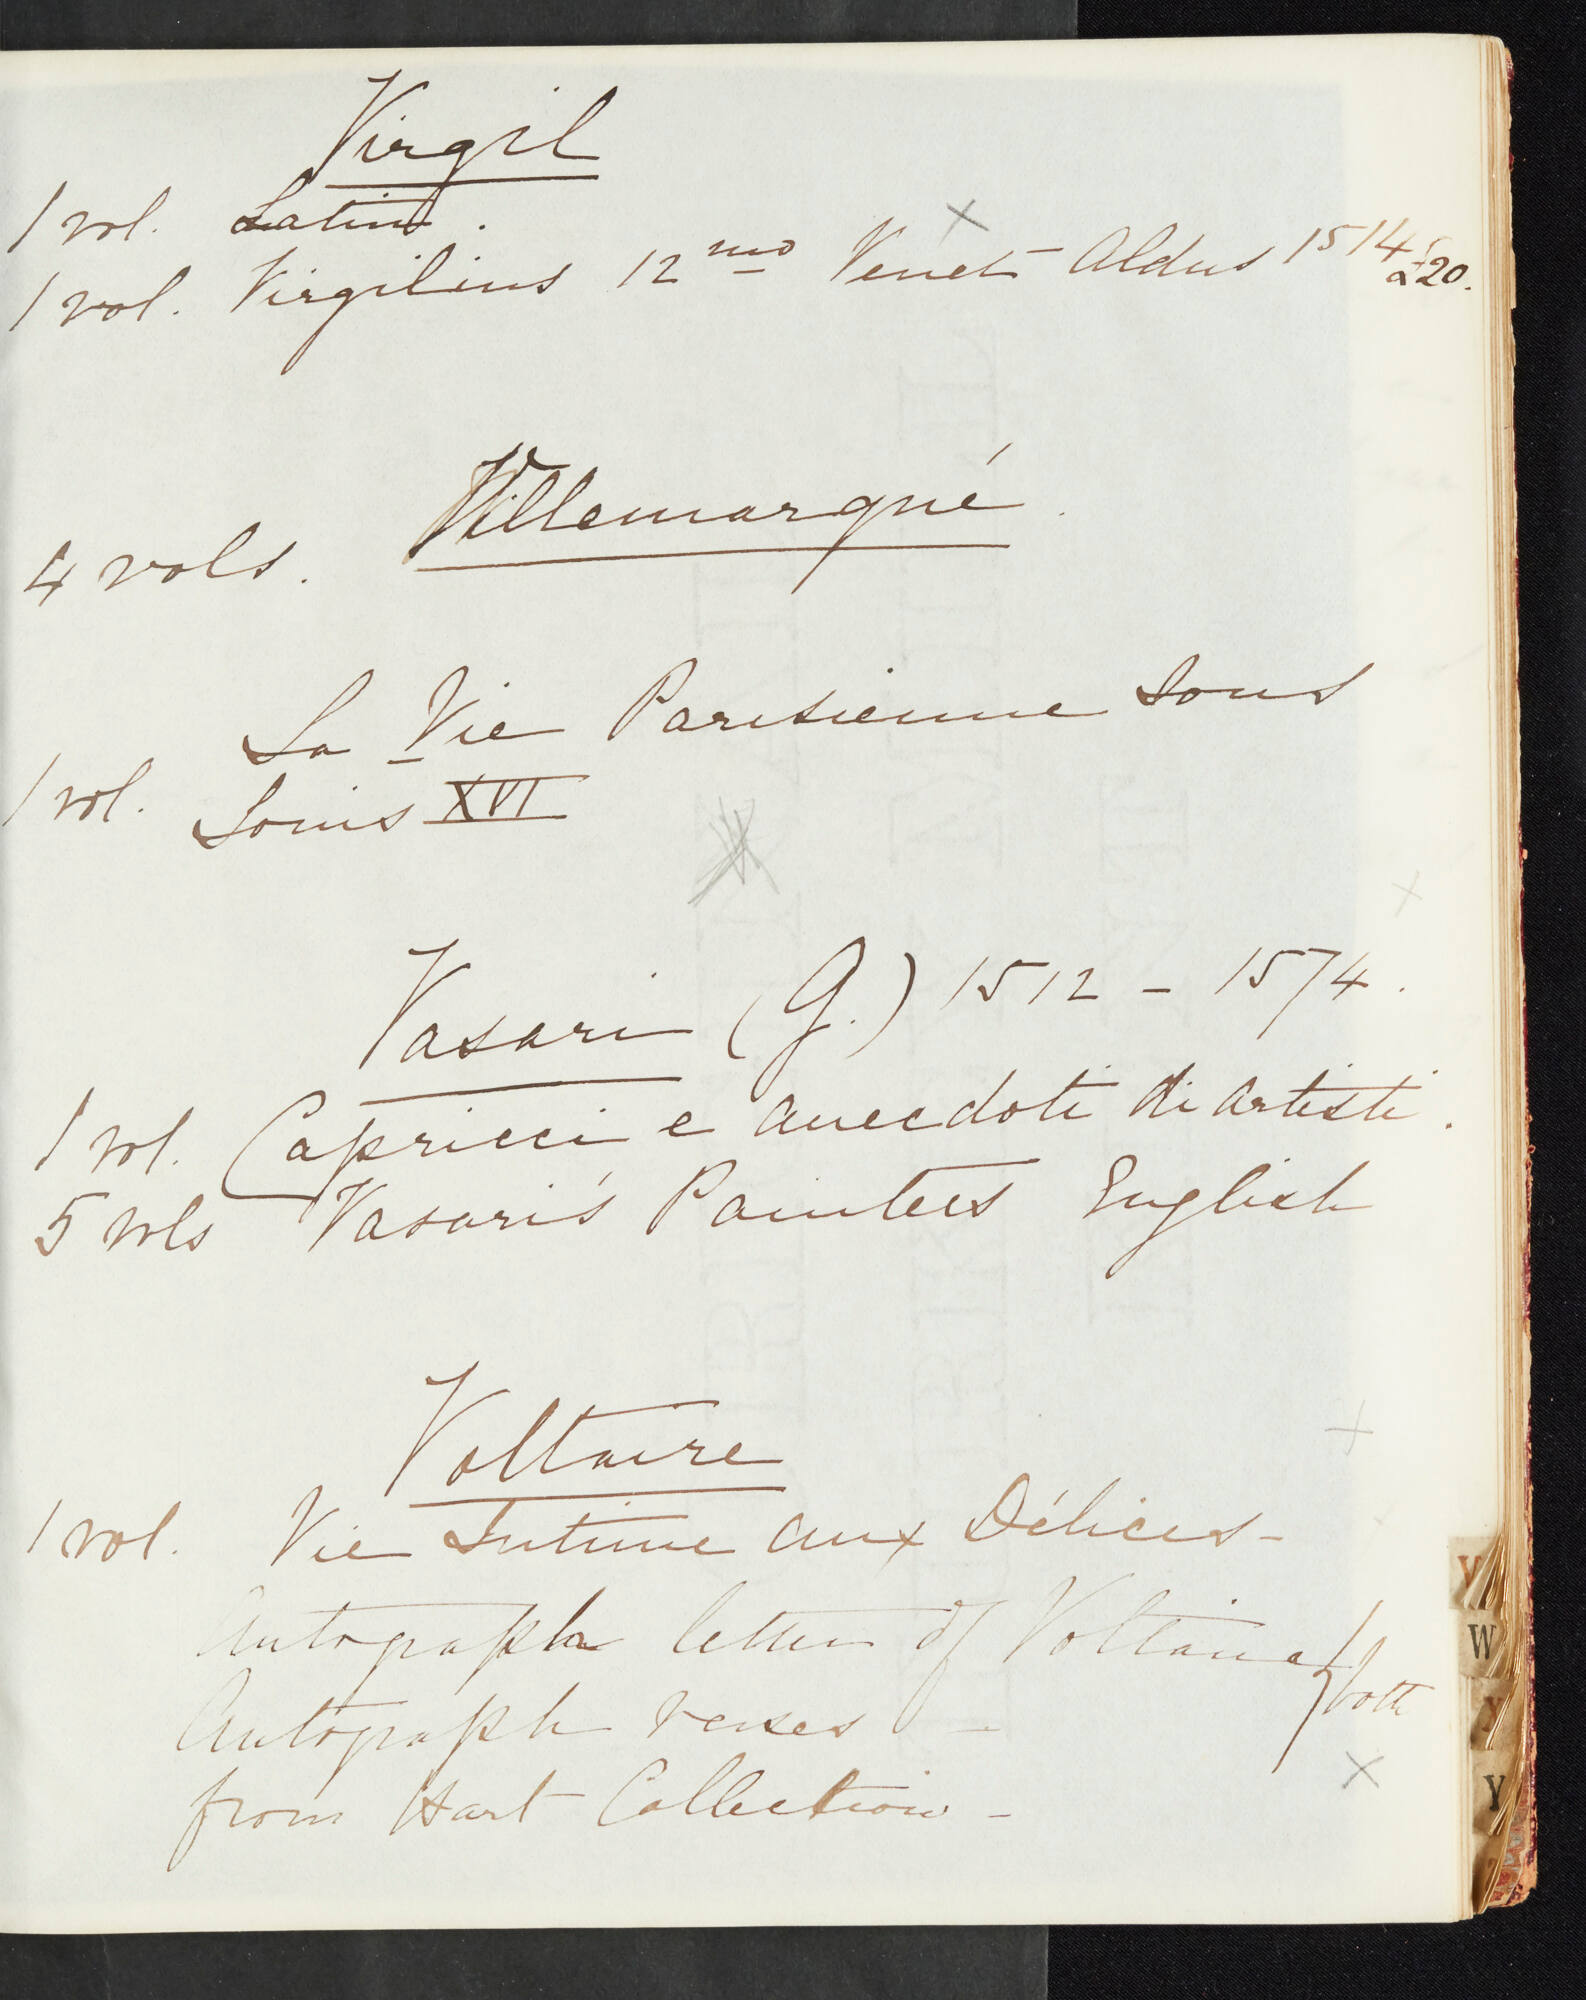 Virgil
1 vol. Latin.
1 vol. Virgilius 12mo Venet Aldus 1514
a 20.
Villemarqué.
4 vols.
La Vie Parisienne sous
1 vol. Louis XVI
Vasari (G.) 1512 - 1574.
1 vol. Capricci e anecdoti di artisti.
5 vols Vasari's Painters English
Voltaire
1 vol. Vie Intime aux Délices -
Autograph letter of Voltaire } both
Autograph verses -
from Hart Collection -
V
W
X
Y